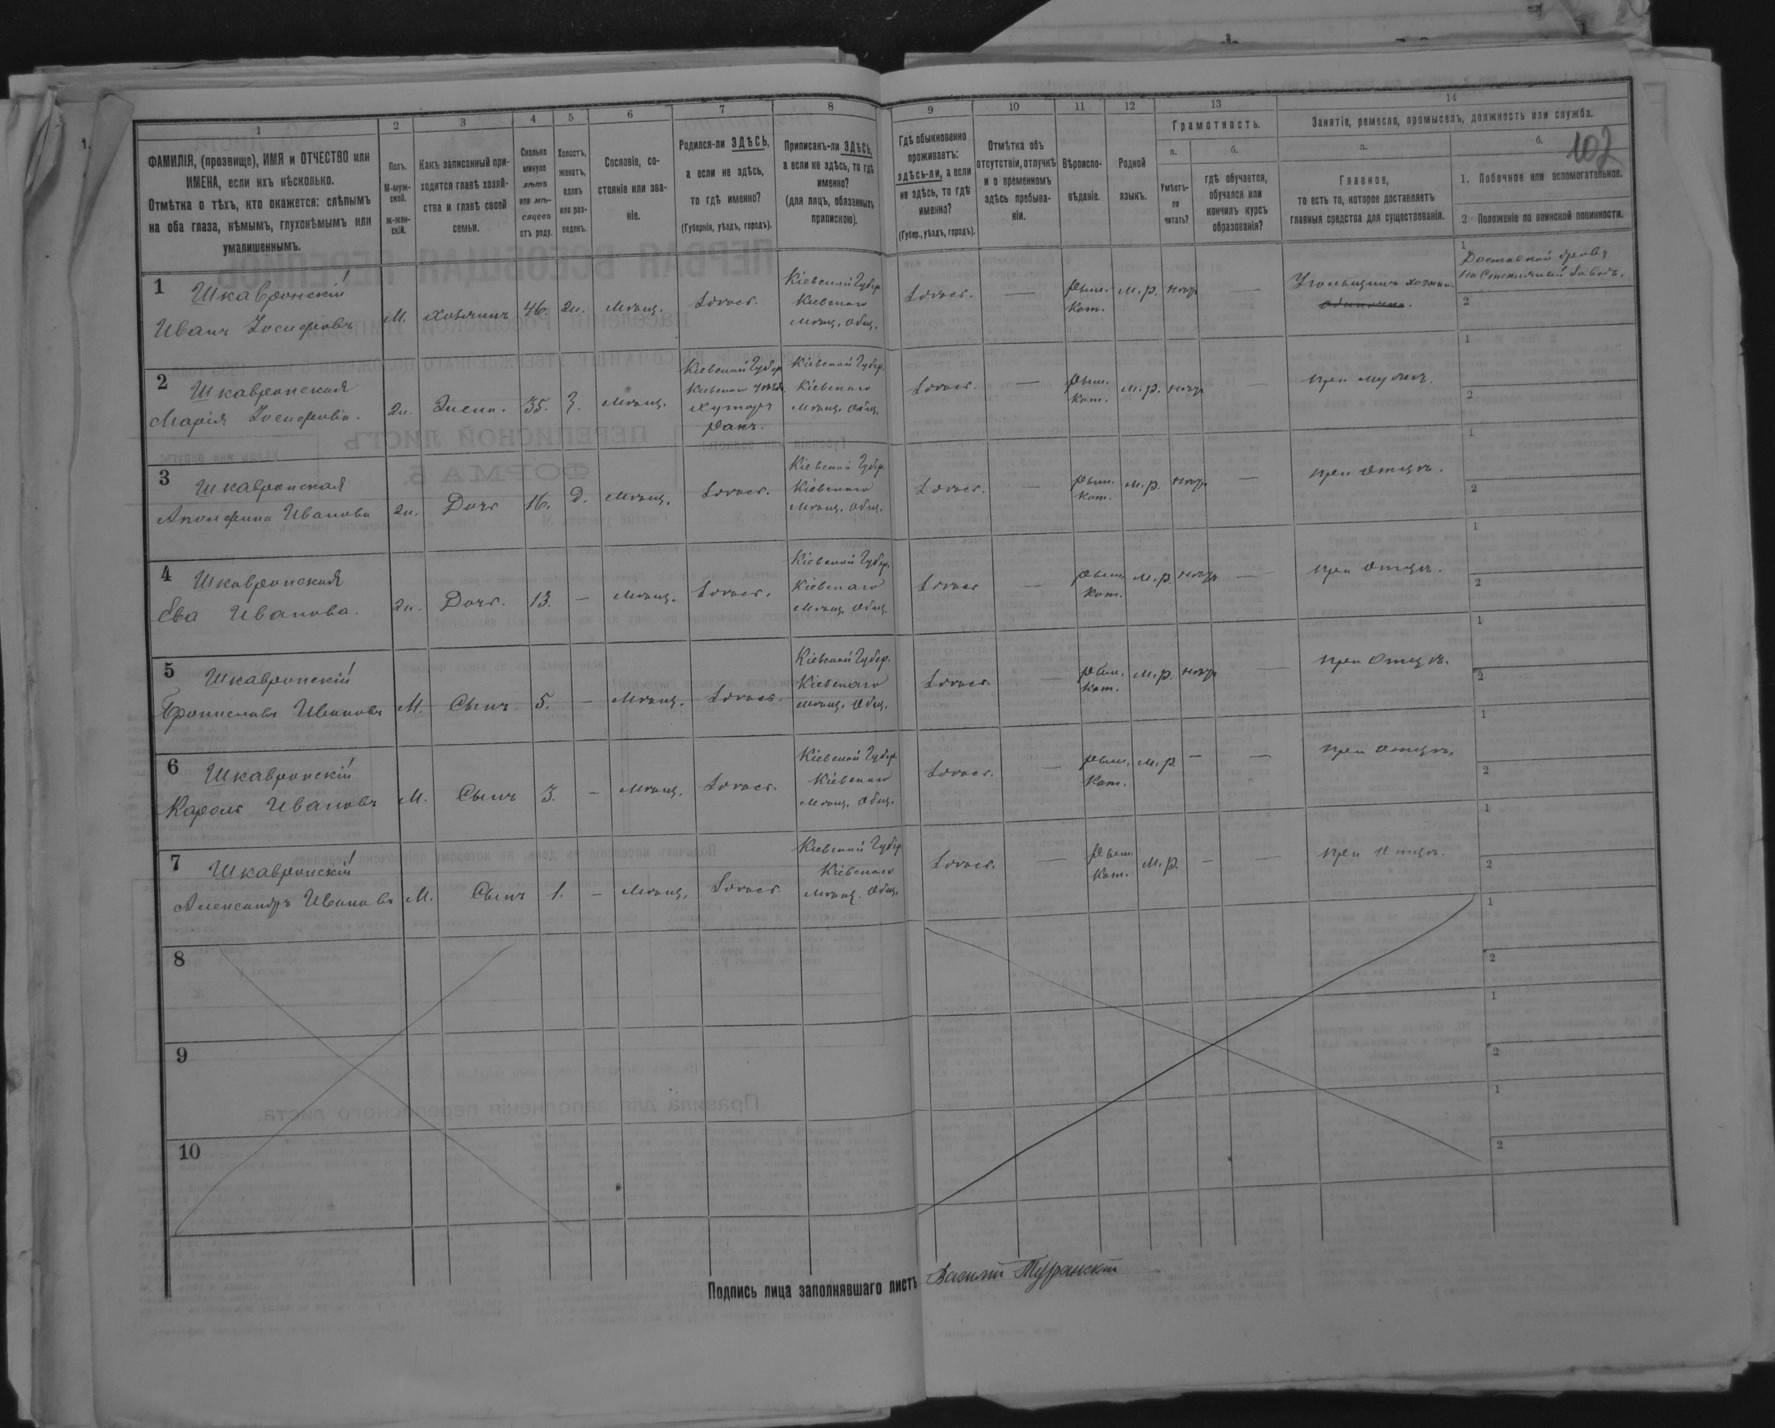 1 2 3 4 5 6 7 8 9 10 11 12 13 14
102
ФАМИЛІЯ, (прозвище), ИМЯ и ОТЧЕСТВО или
ИМЕНА, если ихъ нѣсколько.
Отмѣтка о тѣхъ, кто окажется: слѣпымъ
на оба глаза, нѣмымъ, глухонѣмымъ или
умалишеннымъ.
Полъ.
М-муж-
ской.
Ж-жен-
скій.
Какъ записанный при-
ходится главѣ хозяй-
ства и главѣ своей
семьи.
Сколько
минуло
лѣтъ
или мѣ-
сяцевъ
отъ роду.
Холостъ,
женатъ,
вдовъ
или раз-
веденъ.
Сословіе, со-
стояніе или зва-
ніе.
Родился-ли ЗДѢСЬ,
а если не здѣсь,
то гдѣ именно?
(Губернія, уѣздъ, городъ).
Приписанъ-ли ЗДѢСЬ,
а если не здѣсь, то гдѣ
именно?
(для лицъ, обязанныхъ
припискою).
Гдѣ обыкновенно
проживаетъ:
здѣсь-ли, а если
не здѣсь, то гдѣ
именно?
(Губер., уѣздъ, городъ).
Отмѣтка объ
отсутствіи, отлучкѣ
и о временномъ
здѣсь пребыва-
ніи.
Вѣроиспо-
вѣданіе.
Родной
языкъ.
Грамотность.
а.
Умѣетъ-
ли
читать?
б.
гдѣ обучается,
обучался или
кончилъ курсъ
образованія?
Занятіе, ремесло, промыселъ, должность или служба.
а.
Главное,
то есть то, которое доставляетъ
главныя средства для существованія.
б.
1. Побочное или вспомогательное.
2 Положеніе по воинской повинности.
1 Шкавронскій
Иванъ Іосифовъ М. хозяинъ 46. ж. мѣщ. здѣсь.
Кіевской Губер.
Кіевскаго
мѣщ. общ.
здѣсь. — Рым. Кат. м.р. нѣтъ —
1
2
2 Шкавронская
Марія Іосифовна. ж. Жена. 35. З. мѣщ.
Кіевской Губер.
Кіевскаго уѣзда
Хуторъ
Кіевской Губер.
Кіевскаго
мѣщ. общ.
здѣсь. — Рым. Кат. м.р. нѣтъ — при мужѣ.
1
2
3 Шкавронская
Иванова ж. Дочь 16. д. мѣщ. здѣсь.
Кіевской Губер.
Кіевскаго
мѣщ. общ.
здѣсь. — Рым. Кат. м.р. нѣтъ — при отцѣ.
1
2
4 Шкавронская
Ева Иванова. ж. Дочь. 13. — мѣщ. здѣсь.
Кіевской Губер.
Кіевскаго
мѣщ. общ.
здѣсь — Рым. Кат. м.р. нѣтъ — при отцѣ.
1
2
5 Шкавронскій
Брониславъ Ивановъ М. Сынъ 5. — мѣщ. здѣсь.
Кіевской Губер.
Кіевскаго
мѣщ. общ.
здѣсь — Рым. Кат. м.р. нѣтъ — при отцѣ.
1
2
6 Шкавронскій
Кароль Ивановъ М. Сынъ 3. — мѣщ. здѣсь.
Кіевской Губер.
Кіевскаго
мѣщ. общ.
здѣсь. — Рым. Кат. м.р — — при отцѣ.
1
2
7 Шкавронскій
Александръ Ивановъ М. Сынъ 1. — мѣщ. здѣсь
Кіевской Губер.
Кіевскаго
мѣщ. общ.
здѣсь. — Рым. Кат. м.р. — — при отцѣ.
1
2
8
1
2
9
1
2
10
1
2
Подпись лица заполнявшаго листъ Василій